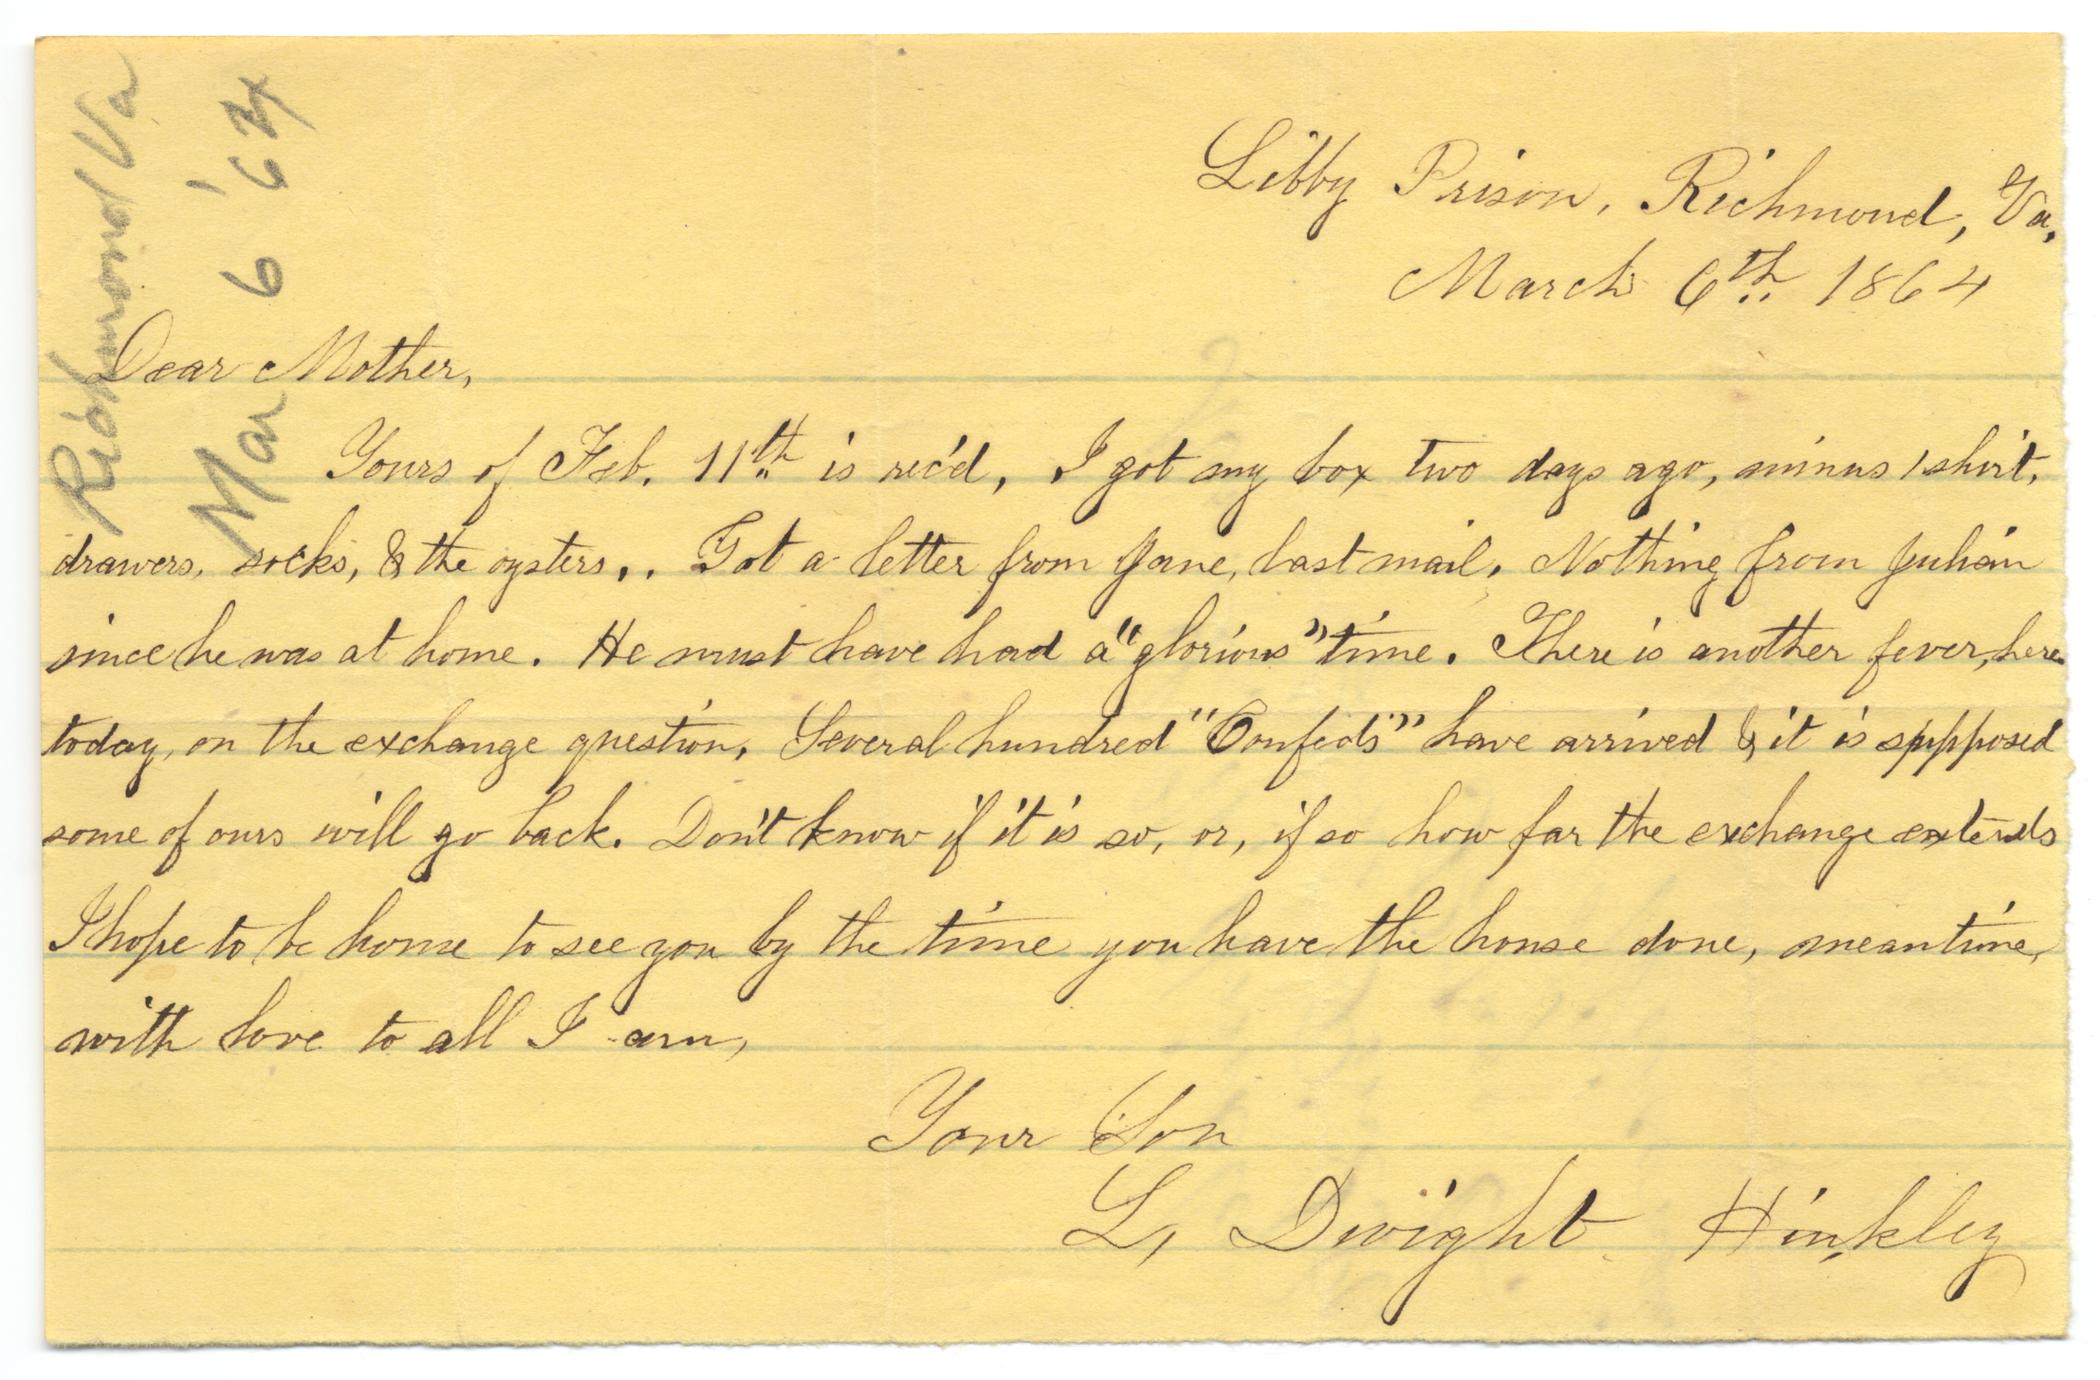 Richmond Va
Mar 6 '64
Libby Prison, Richmond, Va,
March 6th 1864
Dear Mother,
Yours of Feb. 11th is rec'd, I got my box two days ago, minus 1 shirt,
drawers, socks, & the oysters,. Got a letter from Jane, last mail. Nothing from Julian
since he was at home. He must have had a "glorious" time. There is another fever, here
today, on the exchange question. Several hundred "Confeds" have arrived & it is supposed
some of ours will go back. Don't know if it is so, or, if so how far the exchange extends
I hope to be home to see you by the time you have the house done, meantime,
with love to all I am,
Your Son
L, Dwight Hinkley